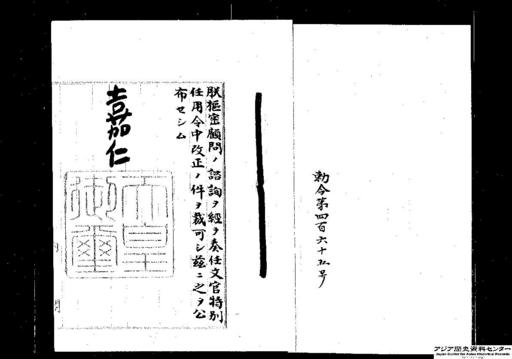 勅令第四百六十五号
朕樞密顧問ノ諮詢ヲ經テ奏任文官特別
任用令中改正ノ件ヲ裁可シ茲ニ之ヲ公
布セシム
嘉仁
天皇
御璽
月
アジア歴史資料センター
Japan Center for Asian Historical Records